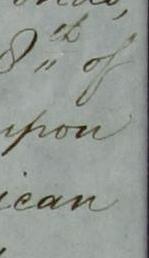 8"th of
upon
ican